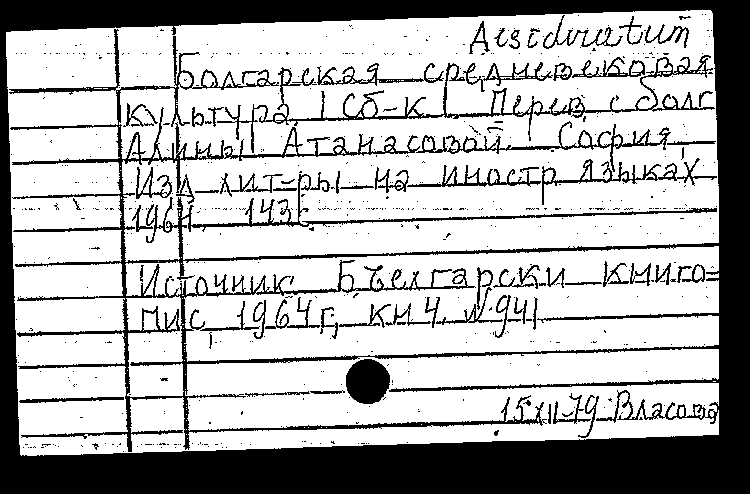 Desideratum
Болгарская средневековая
культура. [Сб-к]. Перев. с болг.
Алины Атанасовой. София,
Изд. лит-ры на иностр. языках
1964. 143с.
Источник: Бъелгарски книго=
пис, 1964г, кн 4. №941
15.XII-79 Власова